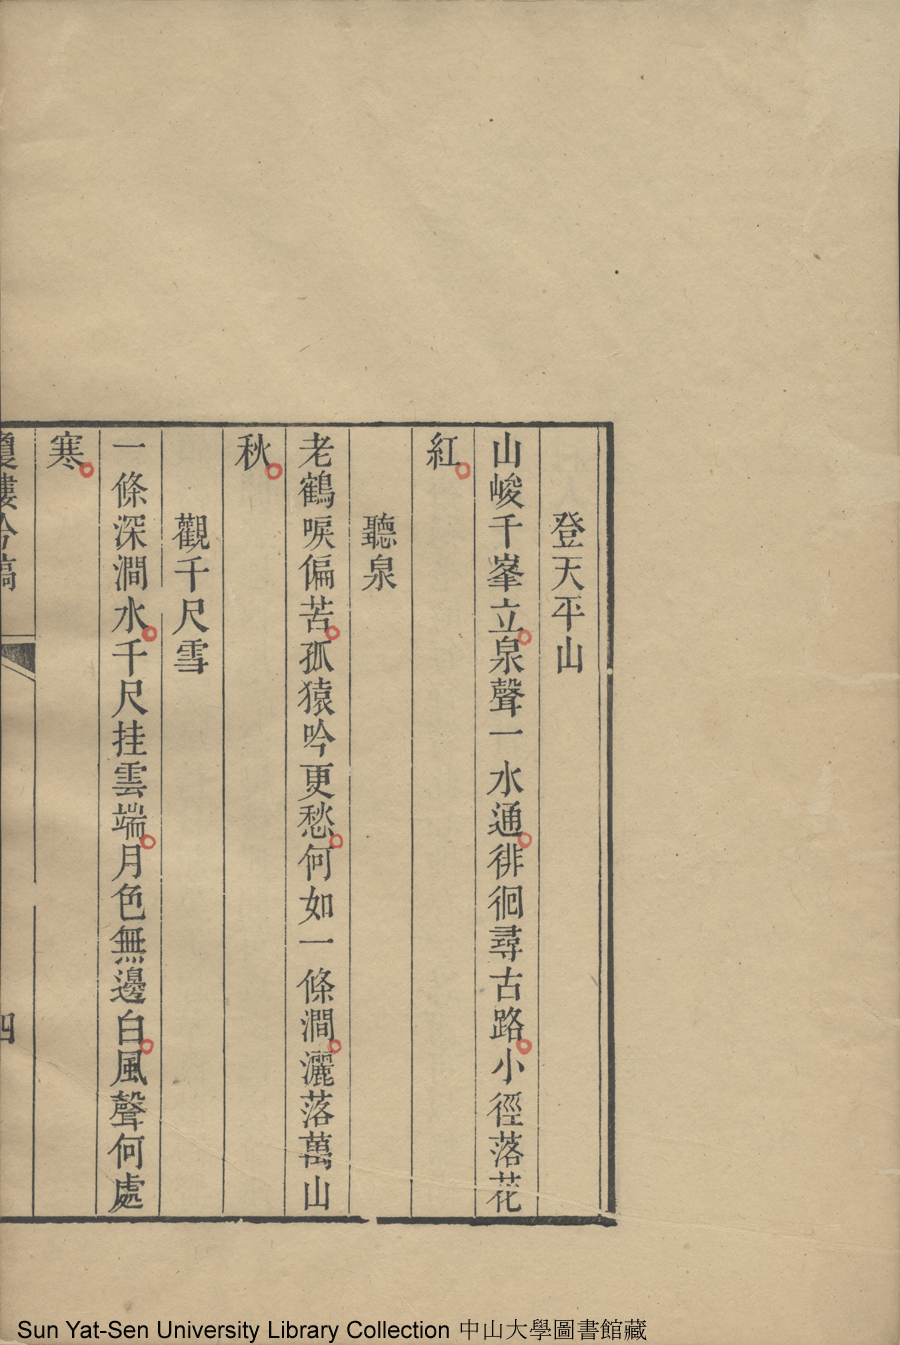 登天平山
山峻千峯立泉聲一水通徘徊尋古路小徑落花
紅
聽泉
老鶴唳偏苦孤猿吟更愁何如一條澗灑落萬山
秋
觀千尺雪
一條深澗水千尺挂雲端月色無邊白風聲何處
寒
瓊樓吟稿
四
Sun Yat-Sen University Library Collection 中山大學圖書館藏